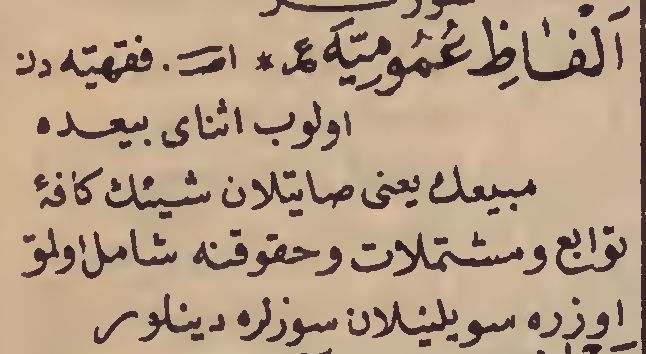 اَلْفَاظِ عُمُومِيَّه ع * اصـ. فقهيته دن
اولوب اثنای بيعده
مبيعك يعنی صاتيلان شيئك كافۀ
توابع و مشتملات و حقوقنه شامل اولمق
اوزره سويلنيلان سوزلره دينلور